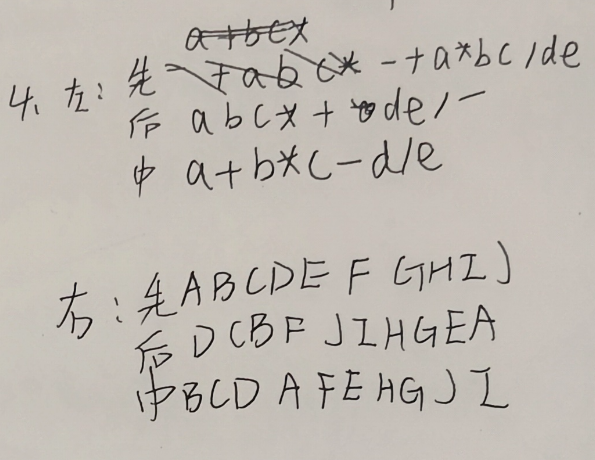 a+bcx
4、左：先 +abc* -+a*bc/de
后 abc*+de/-
中 a+b*c-d/e
右：先ABCDEFGHIJ
后DCBFJIHGEA
中BCDAFEHGJI